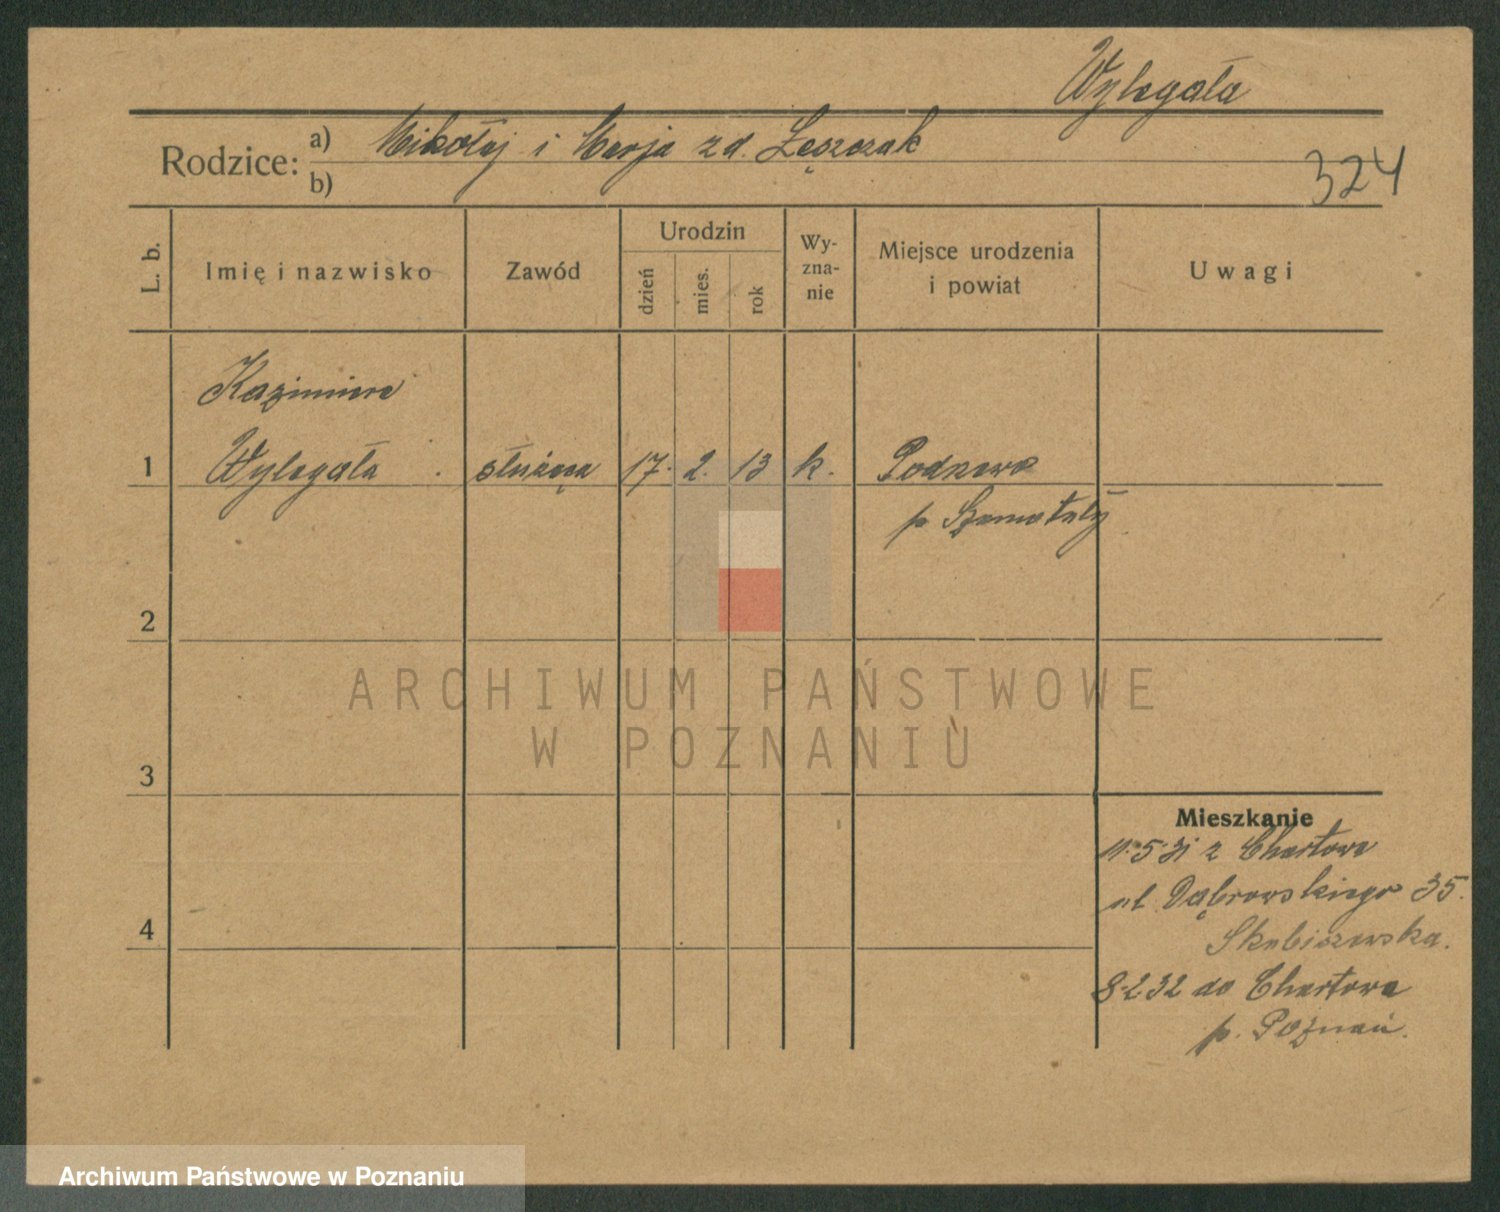 Wylegała
Rodzice: a) Mikołaj i Marja zd. Łęszczak
b)
324
L. b.
Imię i nazwisko
Zawód
Urodzin
dzień
mies.
rok
Wy-
zna-
nie
Miejsce urodzenia
i powiat
Uwagi
Kazimiera
1 Wylegała służąca 17. 2. 13 k. Podrzewo
p Szamotuły
2
3
4
Mieszkanie
11.5.31 z Chartowa
ul. Dąbrowskiego 35.
Skubiszewska.
8.2.32 do Chartowa
p. Poznań.
ARCHIWUM PAŃSTWOWE
W POZNANIU
Archiwum Państwowe w Poznaniu